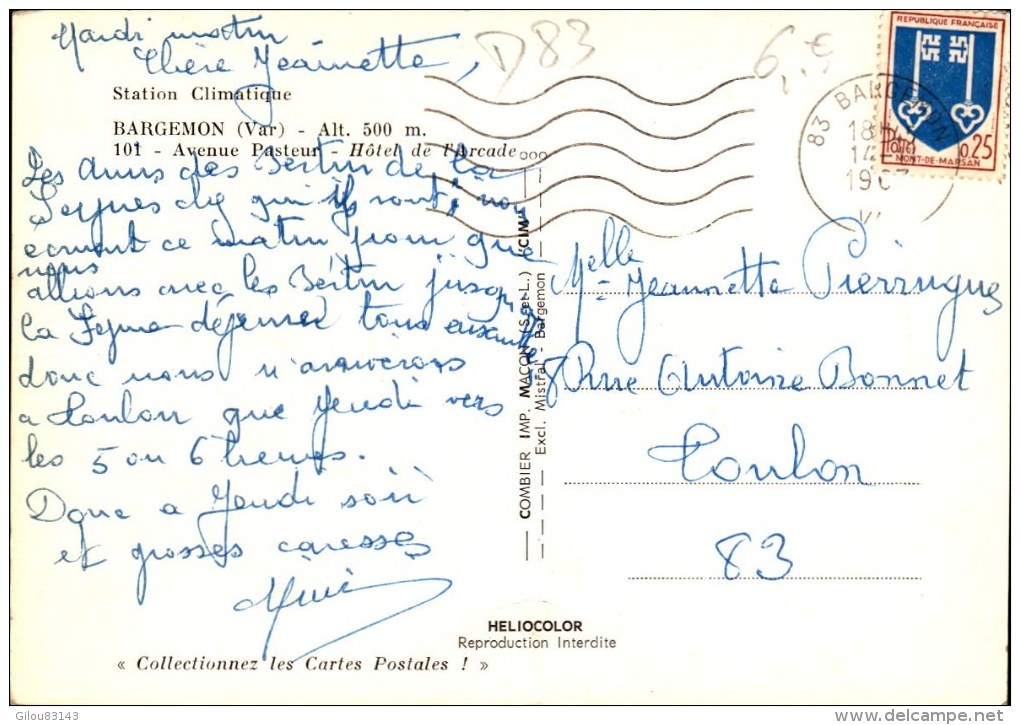 Mardi matin
Chère Jeannette,
D83
6,.€
Station Climatique
BARGEMON (Var) - Alt. 500 m.
101 - Avenue Pasteur - Hôtel de l'Arcade
Les amis des Bertin de la
Seynes qui ils sont, nous
écrivent ce matin pour que
nous
allions avec les Bertin jusqu'à
la Seyne déjeuner tous ensemble
donc nous n'arriverons
a Toulon que Jeudi vers
les 5 ou 6 heures.
Donc a Jeudi soir
et grosses caresses
Melle Jeannette Pierrugues
8 Rue Antoine Bonnet
Toulon
83
REPUBLIQUE FRANÇAISE
Postes
0,25
MONT-DE-MARSAN
83 BARGEMON
18H
14
196
COMBIER IMP. MACON (S.-et-L.) "CIM"
Excl. Mistral - Bargemon
HELIOCOLOR
Reproduction Interdite
« Collectionnez les Cartes Postales ! »
Gilou83143
www.delcampe.net